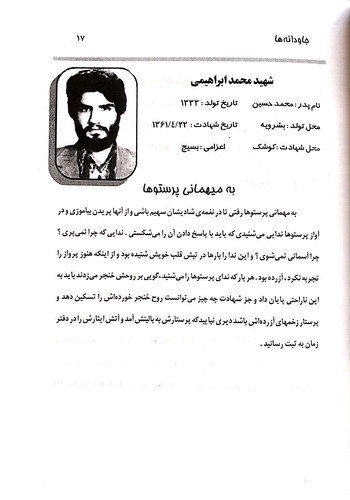 جاودانه‌ها
۱۷
شهید محمد ابراهیمی
نام پدر : محمد حسین تاریخ تولد : ۱۳۳۳
محل تولد : بشرویه تاریخ شهادت : ۱۳۶۱/۴/۲۲
محل شهادت : کوشک اعزامی : بسیج
به میهمانی پرستوها
به مهمانی پرستوها رفتی تا در نغمه‌ی شادیشان سهیم باشی و از آنها پریدن بیاموزی و در
آواز پرستوها ندایی می‌شنیدی که باید با پاسخ دادن آن را می‌شکستی . ندایی که چرا نمی‌پری ؟
چرا آسمانی نمی‌شوی ؟ و این ندا را بارها در تپش قلب خویش شنیده بود و از اینکه هنوز پرواز را
تجربه نکرد ، آزرده بود . هر بار که ندای پرستوها را می‌شنید ، گویی بر روحش خنجر می‌زدند باید به
این ناراحتی پایان داد و جز شهادت چه چیز می‌توانست روح خنجر خورده‌اش را تسکین دهد و
پرستار زخمهای آزرده‌اش باشد دیری نپایید که پرستارش به بالینش آمد و آتش ایثارش را در دفتر
زمان به ثبت رسانید .